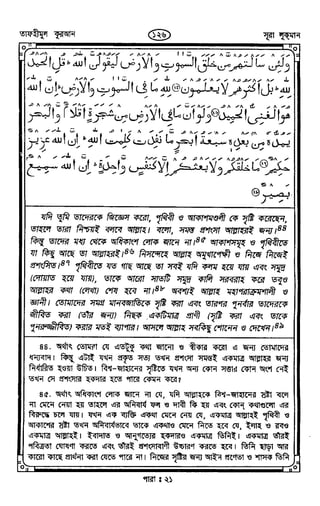 তাফহীমুল কুরআন
১২৬
সূরা লুকমান
وَلَئِنْ سَاَلْتَهُمْ مَّنْ خَلَقَ السَّمٰوٰتِ وَالْاَرْضَ لَيَقُوْلُنَّ اللهُ ؕ قُلِ الْحَمْدُ
لِلّٰهِ ؕ بَلْ اَكْثَرُهُمْ لَا يَعْلَمُوْنَ ﴿۲۵﴾ لِلّٰهِ مَا فِى السَّمٰوٰتِ وَالْاَرْضِ ؕ اِنَّ اللهَ
هُوَ الْغَنِىُّ الْحَمِيْدُ ﴿۲۶﴾ وَلَوْ اَنَّ مَا فِى الْاَرْضِ مِنْ شَجَرَةٍ اَقْلَامٌ وَّالْبَحْرُ
يَمُدُّهٗ مِنْۢ بَعْدِهٖ سَبْعَةُ اَبْحُرٍ مَّا نَفِدَتْ كَلِمٰتُ اللهِ ؕ اِنَّ اللهَ عَزِيْزٌ
حَكِيْمٌ ﴿۲۷﴾ مَا خَلْقُكُمْ وَلَا بَعْثُكُمْ اِلَّا كَنَفْسٍ وَّاحِدَةٍ ؕ اِنَّ اللهَ سَمِيْعٌۢ
بَصِيْرٌ ﴿۲۸﴾
যদি তুমি তাদেরকে জিজ্ঞেস করো, পৃথিবী ও আকাশমণ্ডলী কে সৃষ্টি করেছেন,
তাহলে তারা নিশ্চয়ই বলবে আল্লাহ। বলো, সমস্ত প্রশংসা আল্লাহরই জন্য।৪৪
কিন্তু তাদের মধ্য থেকে অধিকাংশ লোক জানে না।৪৫ আকাশসমূহ ও পৃথিবীতে
যা কিছু আছে তা আল্লাহরই।৪৬ নিঃসন্দেহে আল্লাহ অমুখাপেক্ষী ও নিজে নিজেই
প্রশংসিত।৪৭ পৃথিবীতে যত গাছ আছে তা সবই যদি কলম হয়ে যায় এবং সমুদ্র
(দোয়াত হয়ে যায়), তাকে আরো সাতটি সমুদ্র কালি সরবরাহ করে তবুও
আল্লাহর কথা (লেখা) শেষ হবে না।৪৮ অবশ্যই আল্লাহ মহাপরাক্রমশালী ও
জ্ঞানী। তোমাদের সমগ্র মানবজাতিকে সৃষ্টি করা এবং তারপর পুনর্বার তাদেরকে
জীবিত করা (তাঁর জন্য) নিছক একটিমাত্র প্রাণী (সৃষ্টি করা এবং তাকে
পুনরুজ্জীবিত) করার মতই ব্যাপার। আসলে আল্লাহ সবকিছু শোনেন ও দেখেন।৪৯
৪৪. অর্থাৎ তোমরা যে এতটুকু কথা জানো ও স্বীকার করো এ জন্য তোমাদের
ধন্যবাদ। কিন্তু এটাই যখন প্রকৃত সত্য তখন প্রশংসা সমস্তই একমাত্র আল্লাহর জন্য
নির্ধারিত হওয়া উচিত। বিশ্ব-জাহানের সৃষ্টিতে যখন অন্য কোন সত্তার কোন অংশ নেই
তখন সে প্রশংসার হকদার হতে পারে কেমন করে?
৪৫. অর্থাৎ অধিকাংশ লোক জানে না যে, যদি আল্লাহকে বিশ্ব-জাহানের স্রষ্টা বলে
না মেনে নেয়া হয় তাহলে এর অনিবার্য ফল ও দাবী কি হয় এবং কোন্ কথাগুলো এর
বিরুদ্ধে চলে যায়। যখন এক ব্যক্তি একথা মেনে নেয় যে, একমাত্র আল্লাহই পৃথিবী ও
আকাশের স্রষ্টা তখন অনিবার্যভাবে তাকে একথাও মেনে নিতে হবে যে, ইলাহ ও রবও
একমাত্র আল্লাহই। ইবাদাত ও আনুগত্যের হকদারও একমাত্র তিনিই। একমাত্র তাঁরই
পবিত্রতা ঘোষণা করতে এবং তাঁরই প্রশংসাবাণী উচ্চারণ করতে হবে। তিনি ছাড়া আর
কারো কাছে প্রার্থনা করা যেতে পারে না। নিজের সৃষ্টির জন্য আইন প্রণেতা ও শাসক তিনি
পারা : ২১